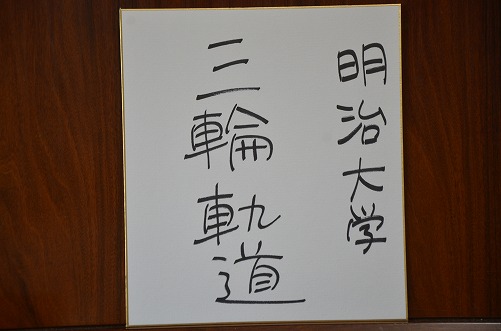 明治大学
三輪軌道